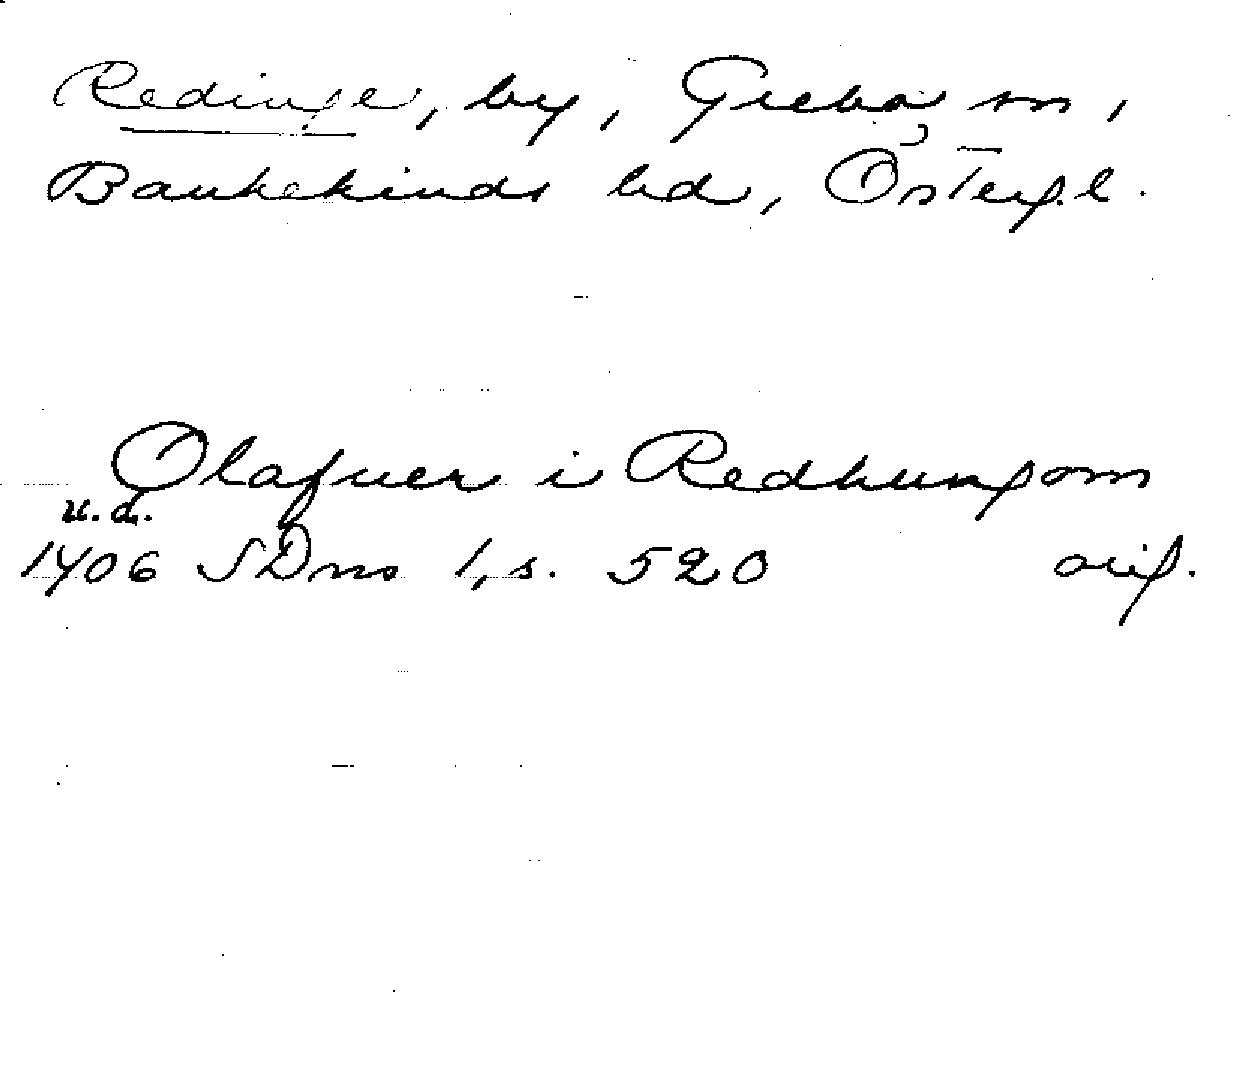 Redinge, by, Grebo sn,
Bankekinds hd, Östergl.
Olafuer i Redhungom
u.d.
1406 SDns 1, s. 520 orig.